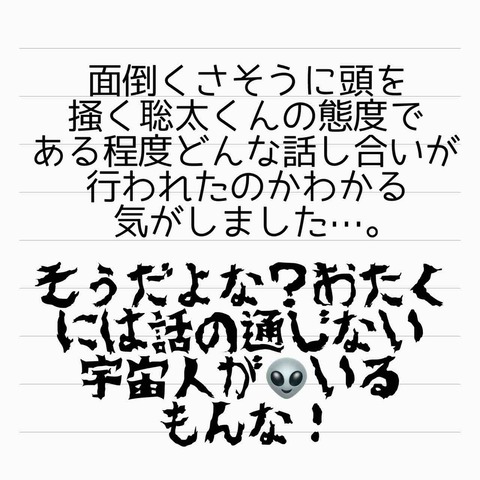 面倒くさそうに頭を
掻く聡太くんの態度で
ある程度どんな話し合いが
行われたのかわかる
気がしました…。
そうだよな？おたく
には話の通じない
宇宙人が👽いる
もんな！